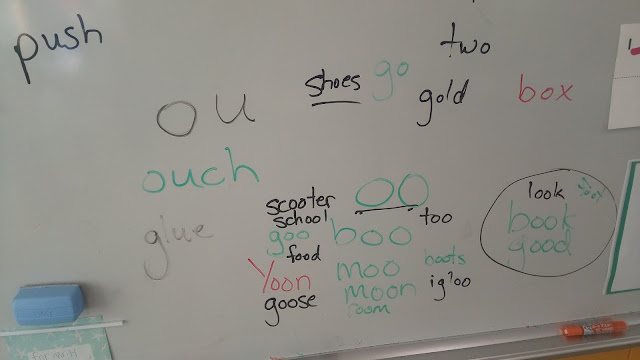 push
two
shoes go
gold
box
ou
ouch
glue
oo
scooter
school
too
goo boo
food
Yoon moo
boots
goose moon
igloo
room
look
book
good